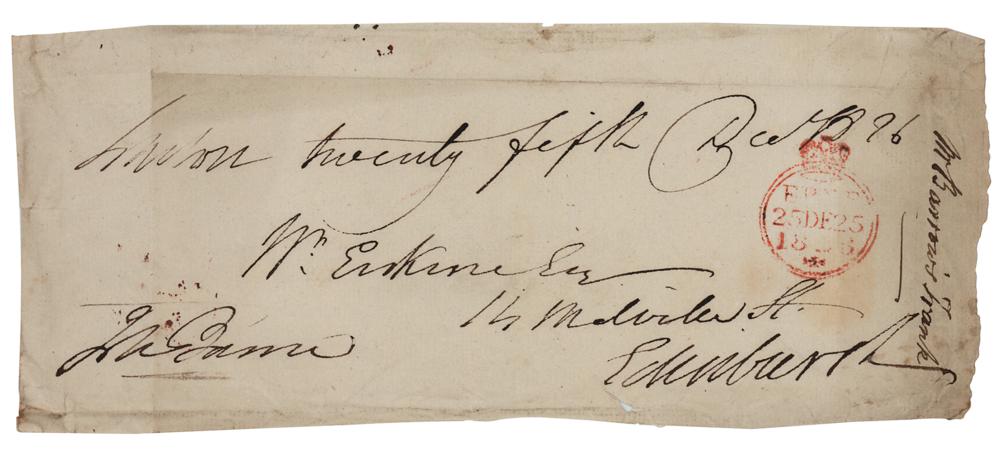 London twenty fifth Decr 1826
Wm. Erskine Esq
14 Melville St.
Edinburgh
FREE
25DE25
1826
Frank